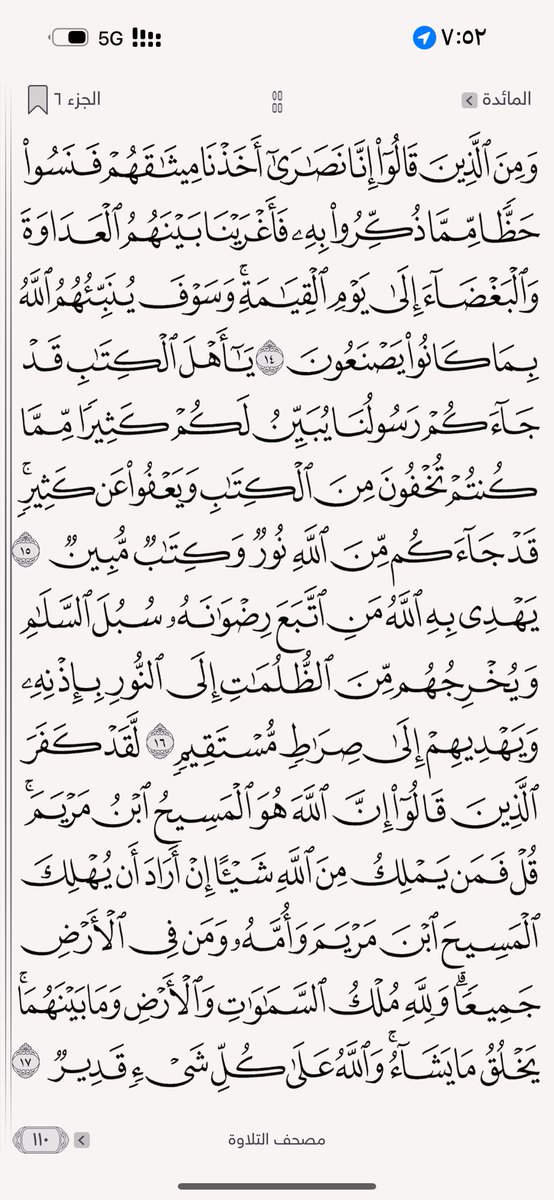 ٧:٥٢ 5G
المائدة الجزء ٦
وَمِنَ ٱلَّذِينَ قَالُوٓا۟ إِنَّا نَصَـٰرَىٰٓ أَخَذْنَا مِيثَـٰقَهُمْ فَنَسُوا۟
حَظًّا مِّمَّا ذُكِّرُوا۟ بِهِۦ فَأَغْرَيْنَا بَيْنَهُمُ ٱلْعَدَاوَةَ
وَٱلْبَغْضَآءَ إِلَىٰ يَوْمِ ٱلْقِيَـٰمَةِ ۚ وَسَوْفَ يُنَبِّئُهُمُ ٱللَّهُ
بِمَا كَانُوا۟ يَصْنَعُونَ ١٤ يَـٰٓأَهْلَ ٱلْكِتَـٰبِ قَدْ
جَآءَكُمْ رَسُولُنَا يُبَيِّنُ لَكُمْ كَثِيرًا مِّمَّا
كُنتُمْ تُخْفُونَ مِنَ ٱلْكِتَـٰبِ وَيَعْفُوا۟ عَن كَثِيرٍ ۚ
قَدْ جَآءَكُم مِّنَ ٱللَّهِ نُورٌ وَكِتَـٰبٌ مُّبِينٌ ١٥
يَهْدِى بِهِ ٱللَّهُ مَنِ ٱتَّبَعَ رِضْوَٰنَهُۥ سُبُلَ ٱلسَّلَـٰمِ
وَيُخْرِجُهُم مِّنَ ٱلظُّلُمَـٰتِ إِلَى ٱلنُّورِ بِإِذْنِهِۦ
وَيَهْدِيهِمْ إِلَىٰ صِرَٰطٍ مُّسْتَقِيمٍ ١٦ لَّقَدْ كَفَرَ
ٱلَّذِينَ قَالُوٓا۟ إِنَّ ٱللَّهَ هُوَ ٱلْمَسِيحُ ٱبْنُ مَرْيَمَ ۚ
قُلْ فَمَن يَمْلِكُ مِنَ ٱللَّهِ شَيْـًٔا إِنْ أَرَادَ أَن يُهْلِكَ
ٱلْمَسِيحَ ٱبْنَ مَرْيَمَ وَأُمَّهُۥ وَمَن فِى ٱلْأَرْضِ
جَمِيعًا ۗ وَلِلَّهِ مُلْكُ ٱلسَّمَـٰوَٰتِ وَٱلْأَرْضِ وَمَا بَيْنَهُمَا ۚ
يَخْلُقُ مَا يَشَآءُ ۚ وَٱللَّهُ عَلَىٰ كُلِّ شَىْءٍ قَدِيرٌ ١٧
مصحف التلاوة ١١٠